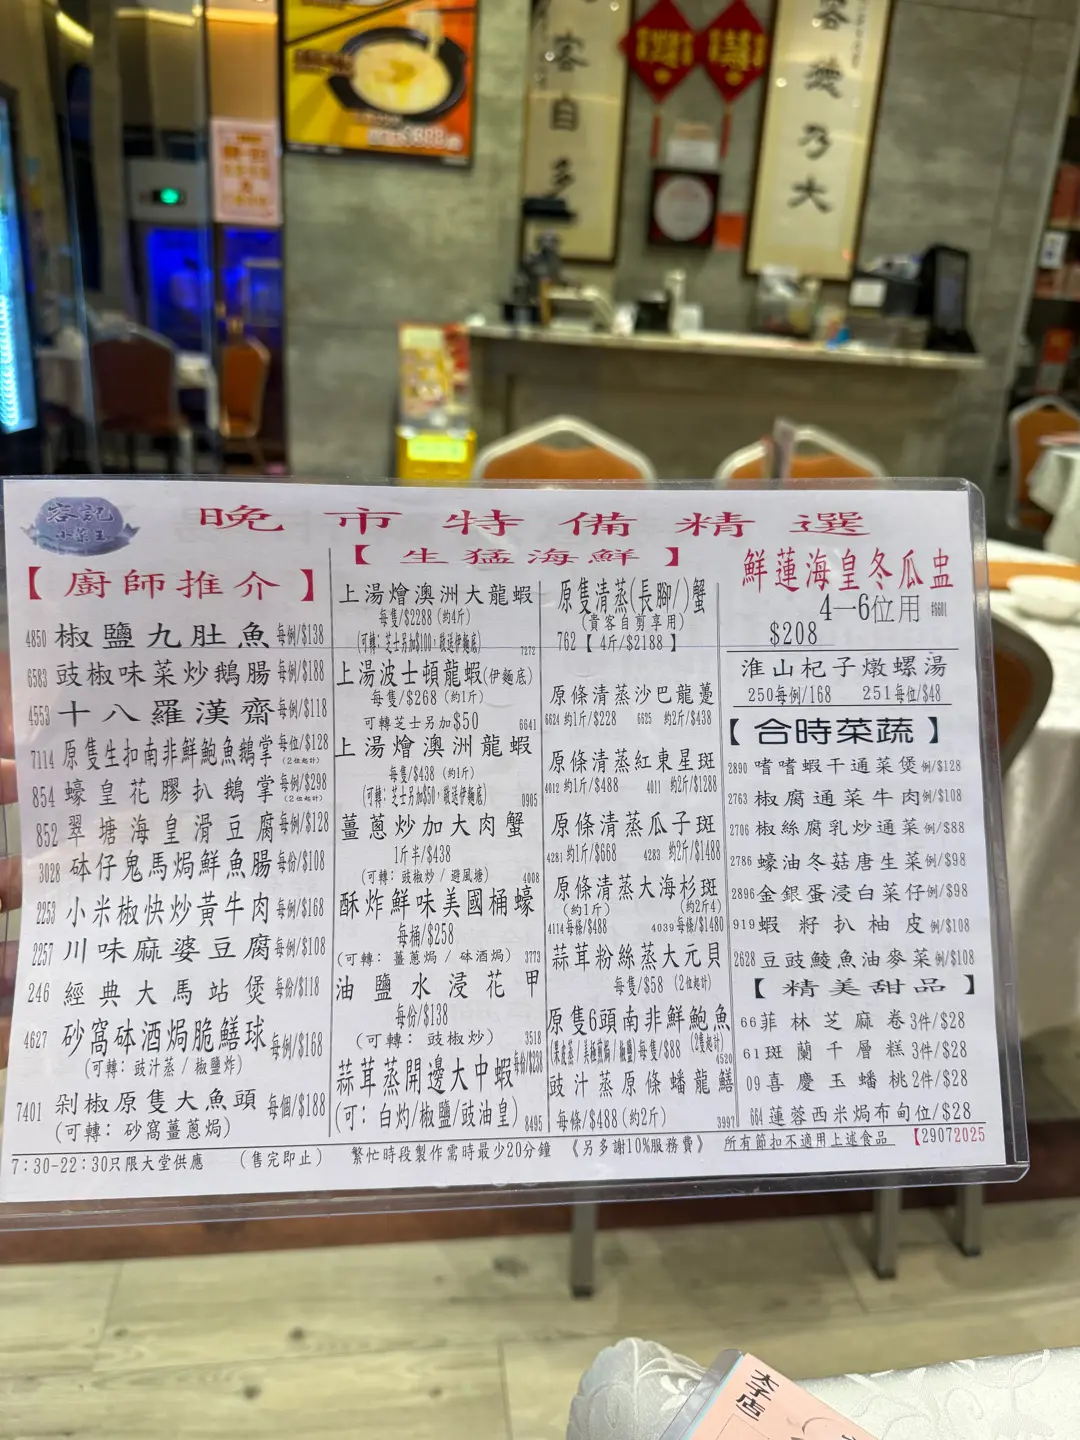 客自多
德乃大
$388
容記
小菜王
晚市特備精選
【廚師推介】
4850 椒鹽九肚魚 每例/$138
6583 豉椒味菜炒鵝腸 每例/$188
4553 十八羅漢齋 每例/$118
7114 原隻生扣南非鮮鮑魚鵝掌 每位/$128
(2位起計)
854 蠔皇花膠扒鵝掌 每例/$298
(2位起計)
852 翠塘海皇滑豆腐 每例/$128
3028 砵仔鬼馬焗鮮魚腸 每份/$108
2253 小米椒快炒黃牛肉 每例/$168
2257 川味麻婆豆腐 每例/$108
246 經典大馬站煲 每份/$118
4627 砂窩砵酒焗脆鱔球 每例/$168
(可轉：豉汁蒸/椒鹽炸)
7401 剁椒原隻大魚頭 每個/$188
(可轉：砂窩薑蔥焗)
【生猛海鮮】
上湯燴澳洲大龍蝦
每隻/$2288 (約4斤)
(可轉：芝士另加$100，敬送伊麵底) 7272
上湯波士頓龍蝦(伊麵底)
每隻/$268 (約1斤)
可轉芝士另加$50 6641
上湯燴澳洲龍蝦
每隻/$438 (約1斤)
(可轉：芝士另加$50，敬送伊麵底) 0905
薑蔥炒加大肉蟹
1斤半/$438
(可轉：豉椒炒/避風塘) 4008
酥炸鮮味美國桶蠔
每桶/$258
(可轉：薑蔥焗/砵酒焗) 3773
油鹽水浸花甲
每份/$138
(可轉：豉椒炒) 3518
蒜茸蒸開邊大中蝦 每份/$238
(可：白灼/椒鹽/豉油皇) 8495
原隻清蒸(長腳/)蟹
(貴客自剪享用)
762【4斤/$2188】
原條清蒸沙巴龍躉
6624 約1斤/$228 6625 約2斤/$438
原條清蒸紅東星斑
4012 約1斤/$488 4011 約2斤/$1288
原條清蒸瓜子斑
4281 約1斤/$668 4283 約2斤/$1488
原條清蒸大海杉斑
(約1斤) (約2斤4)
4114 每條/$488 4039 每條/$1480
蒜茸粉絲蒸大元貝
每隻/$58 (2位起計)
原隻6頭南非鮮鮑魚
(果皮蒸/美極煎焗/椒鹽) 每隻/$88 (2隻起計) 4520
豉汁蒸原條蟠龍鱔
每條/$488 (約2斤) 3997
鮮蓮海皇冬瓜盅
4一6位用
$208
淮山杞子燉螺湯
250每例/168 251每位/$48
【合時菜蔬】
2890 嗜嗜蝦干通菜煲 例/$128
2763 椒腐通菜牛肉 例/$108
2706 椒絲腐乳炒通菜 例/$88
2786 蠔油冬菇唐生菜 例/$98
2896 金銀蛋浸白菜仔 例/$98
919 蝦籽扒柚皮 例/$108
2628 豆豉鯪魚油麥菜 例/$108
【精美甜品】
66 菲林芝麻卷 3件/$28
61 斑蘭千層糕 3件/$28
09 喜慶玉蟠桃 2件/$28
664 蓮蓉西米焗布甸 位/$28
7:30-22:30只限大堂供應 (售完即止) 繁忙時段製作需時最少20分鐘 《另多謝10%服務費》 所有節扣不適用上述食品 【29072025
太子店